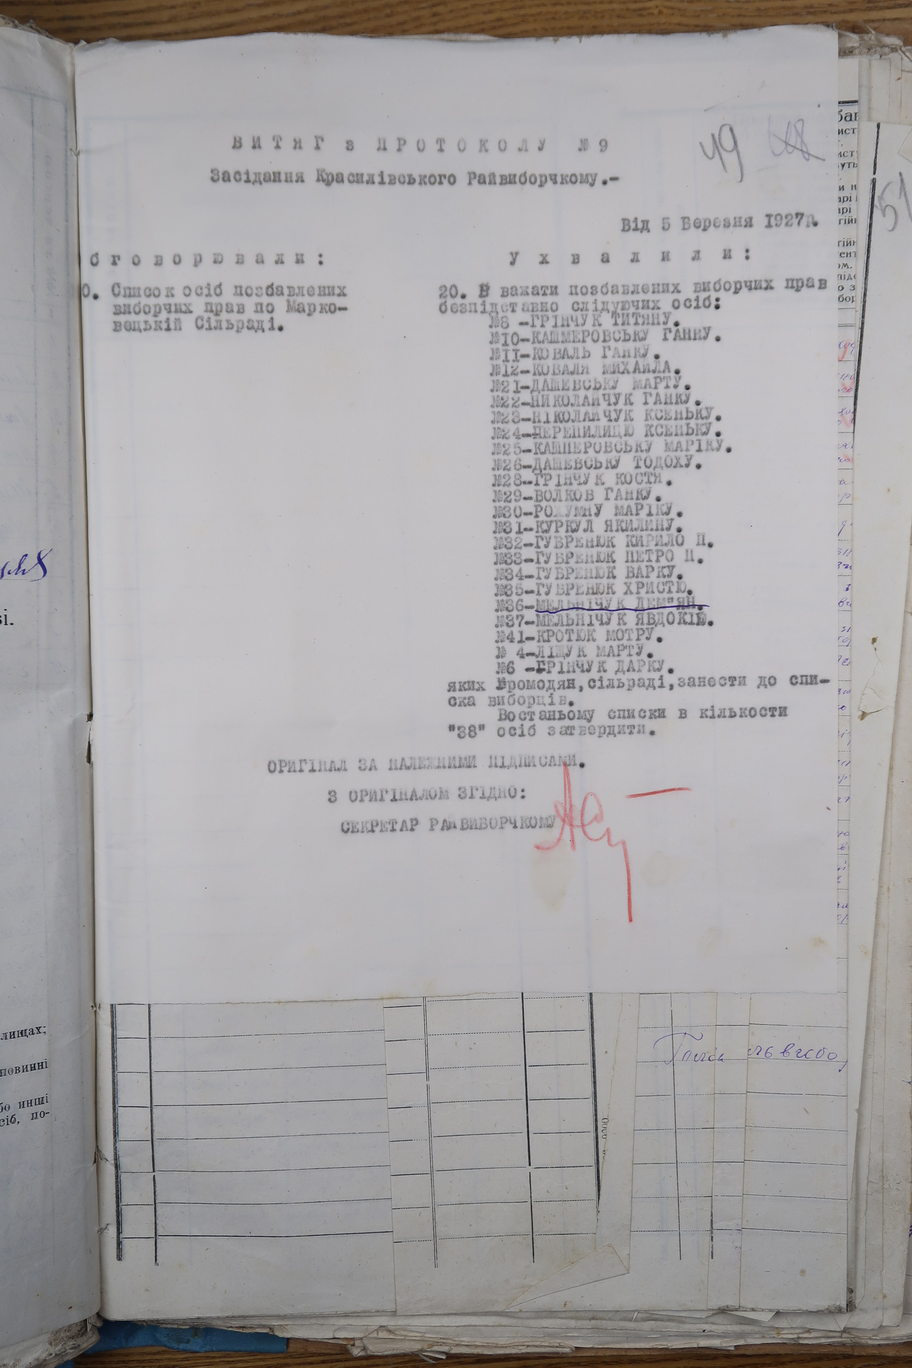 ВИТЯГ з ПРОТОКОЛУ №9
49 48
Засідання Красилівського Райвиборчкому.-
Від 5 Березня 1927р.
бговорювали:
0. Список осіб позбавлених
виборчих прав по Марко-
вецькій Сільраді.
Ухвалили:
20. В важати позбавлених виборчих прав
безпідставно слідуючих осіб:
№8 -ГРІНЧУК ТИТЯНУ.
№10-КАШПЕРОВСЬКУ ГАНКУ.
№11-КОВАЛЬ ГАНКУ.
№12-КОВАЛЯ МИХАЙЛА.
№21-ДАШЕВСЬКУ МАРТУ.
№22-НИКОЛАЙЧУК ГАНКУ.
№23-НІКОЛАЙЧУК КСЕНЬКУ.
№24-ПЕРЕПИЛИЦЮ КСЕНЬКУ.
№25-КАШПЕРОВСЬКУ МАРІКУ.
№26-ДАШЕВСЬКУ ТОДОХУ.
№28-ГРІНЧУК КОСТЯ.
№29-ВОЛКОВ ГАНКУ.
№30-РОЗУМНУ МАРІКУ.
№31-КУРКУЛ ЯКИЛИНУ.
№32-ГУБРЕНЮК КИРИЛО П.
№33-ГУБРЕНЮК ПЕТРО П.
№34-ГУБРЕНЮК ВАРКУ.
№35-ГУБРЕНЮК ХРИСТЮ.
№36-МЕЛЬНІЧУК ДЕМ"ЯН.
№37-МЕЛЬНІЧУК ЯВДОКІЮ.
№41-КРОТЮК МОТРУ.
№ 4-ЛІЩУК МАРТУ.
№6 -ГРІНЧУК ДАРКУ.
яких Громодян,сільраді,занести до спи-
ска виборців.
Востаньому списки в кількости
"38" осіб затвердити.
ОРИГІНАЛ ЗА НАЛЕЖНИМИ ПІДПИСАМИ.
З ОРИГІНАЛОМ ЗГІДНО:
СЕКРЕТАР РАЙВИБОРЧКОМУ
51
сі.
лищах;
повинні
бо инші
сіб, по-